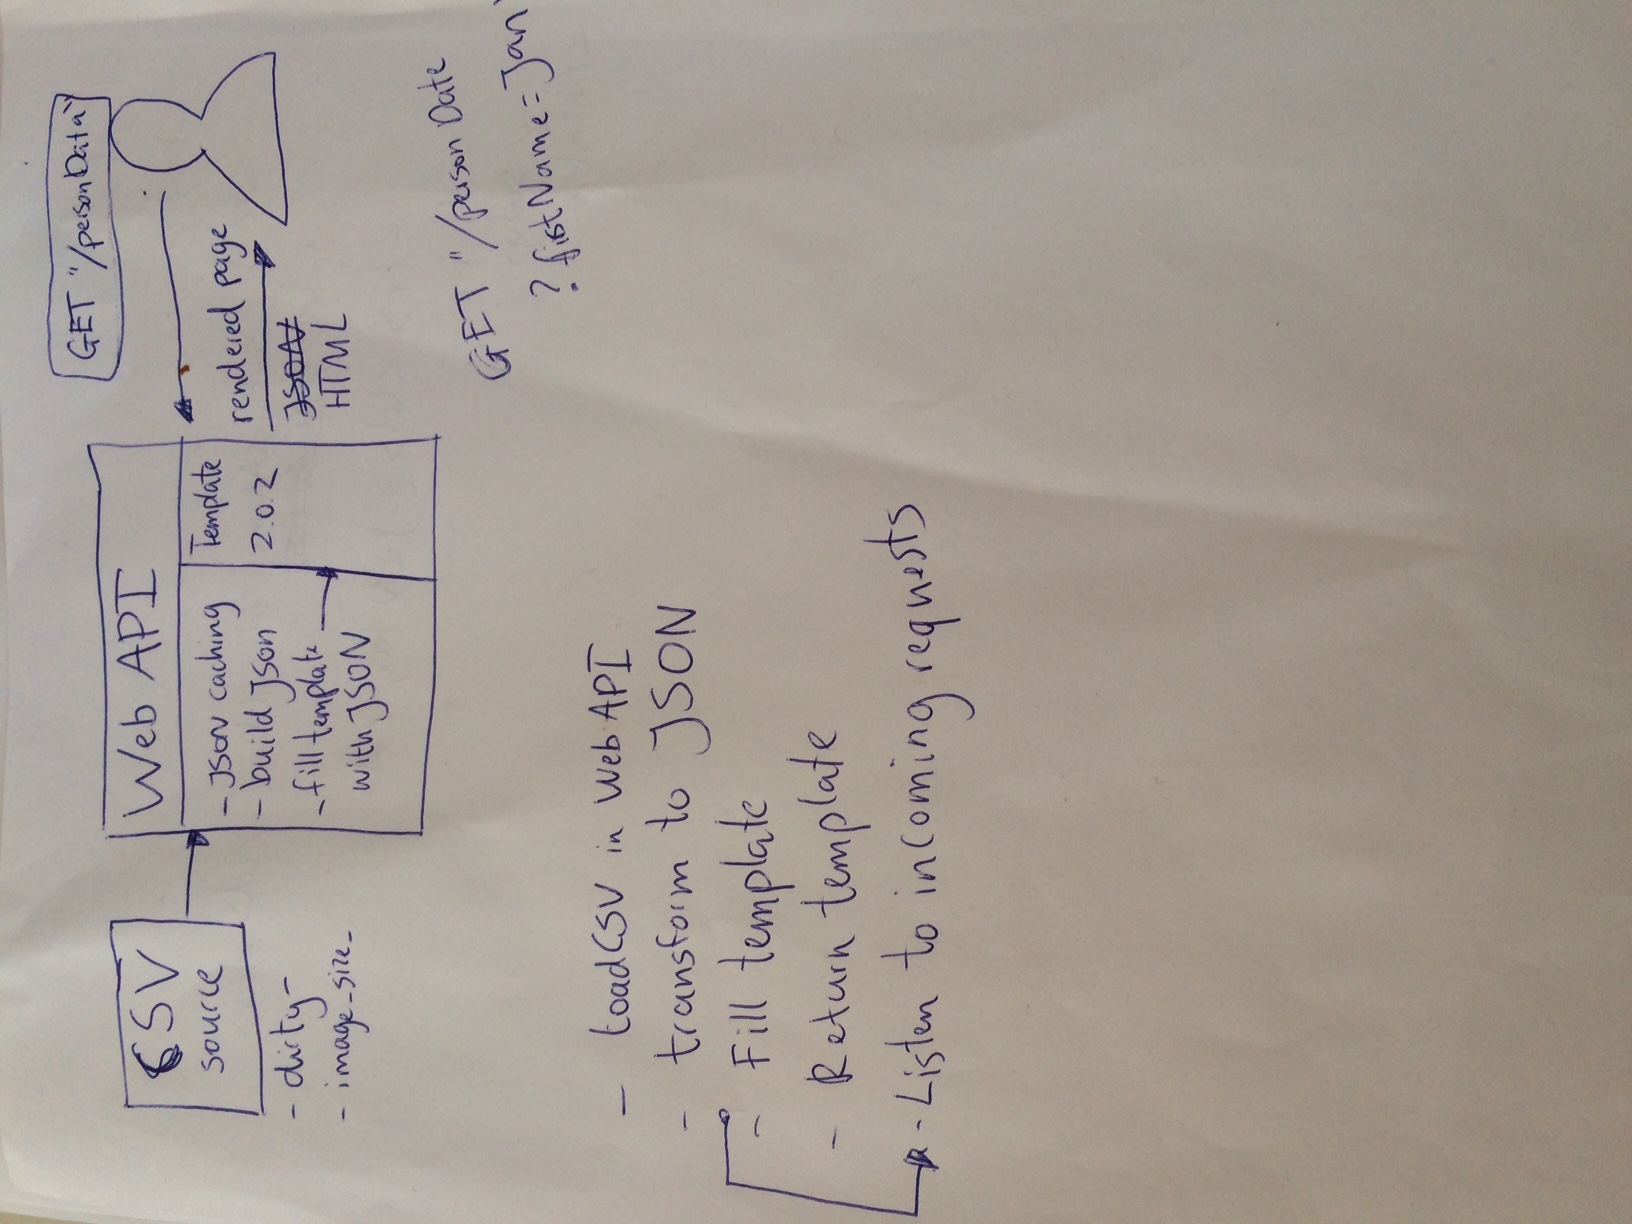 GET "/personData"
CSV
source
- dirty-
- image_size_
Web API
- JSON caching
- build JSON
- fill template
with JSON
Template
2.0.2
rendered page
JSON
HTML
GET "/personDate
?firstName=Jan"
- Load CSV in Web API
- transform to JSON
- Fill template
- Return template
- Listen to incoming requests